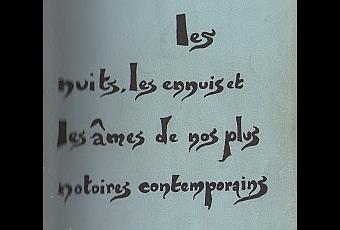 les
nuits, les ennuis et
les âmes de nos plus
notoires contemporains